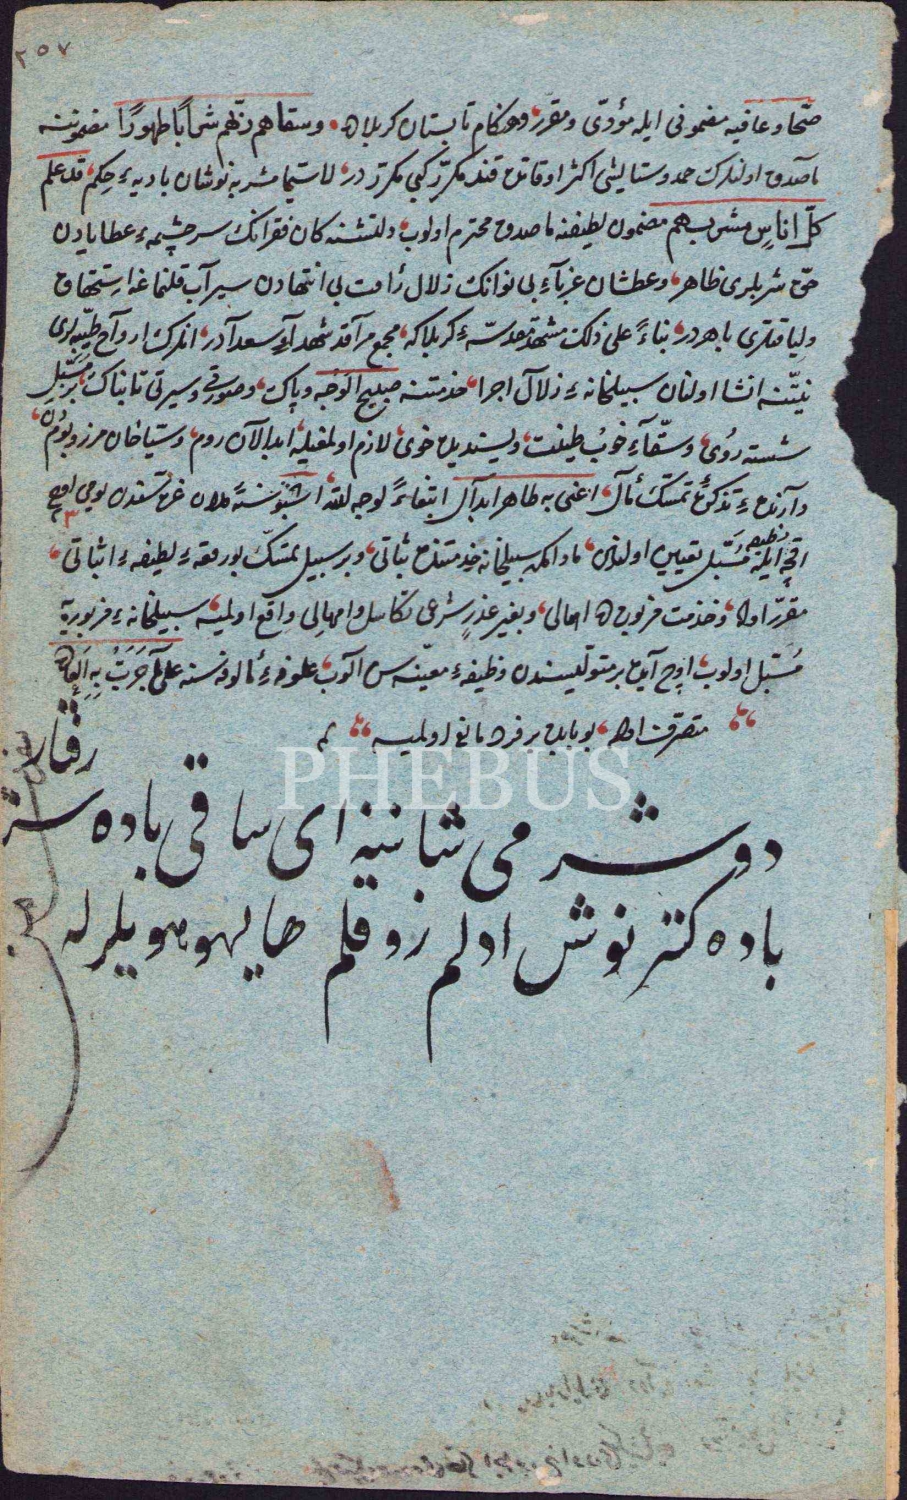 ٢٥٧
صحّا وعافیه مضمونی ایله مؤدّی ومقرّر وهنکام تابستان کربلاده وسقاهم ربّهم شراباً طهورًا مضموننه
ماصدق اولنلرك حمد وستایشی اکثر اوقاتده قند مکرّر کبی مکرّر در لاسیّما مشربه نوشان بادیهٔ حکم قد علم
کلّ اناسٍ مشربهم مضمون لطیفنه ماصدق محترم اولوب دلتشنه کان فقرانك سرچشمهٔ عطایادن
حق شربلری ظاهر وعطشان غربآء بی نوانك زلال رأفت بی انتهادن سیرآب قلنماغه استحقاق
ولیاقتلری باهردر بناءً علی ذلك مشهد مقدسهٔ کربلاکه مجمع مراقد شهدآء سعدآدر انلرك ارواح طیبه لری
نیّتنه انشا اولنان سبیلخانهٔ زلال اجرا خدمتنه صبیح الوجه وپاك وصورتی وسیرتی تابناك بر مسبّل
شسته روی وسقّآء خوب طینت وپسندیده خوی لازم اولمغیله ابدالان روم وسیاحان مرز وبومدن
دارنده تذکرهٔ تمسّك مآل اعنی به طاهر ابدآل ابتغاءً لوجه الله اشبو سنهٔ غرّه سندن یومی اوچ
اقچه وظیفه ایله مسبّل تعیین اولندی مادامکه سبیلخانه خدمتنده ثباتی وبر سبیل تمسّك بو رقعهٔ لطیفهٔ اثباتی
مقرّر اوله وخدمت مزبورده اهمالی وبغیر عذرٍ شرعی تکاسل وامهالی واقع اولمیه سبیلخانهٔ مزبوره یه
مسبّل اولوب اوچ آیده بر متولّیسندن وظیفهٔ معیّنه سن آلوب علوفهٔ مألوفه سنه علی ما جرت به العاده
متصرّف اوله بو بابده بر فرد مانع اولمیه
PHEBUS
دوشر می شانینه ای ساقی باده
باده کتر نوش ادلم زوقلم هایهو هویلرله